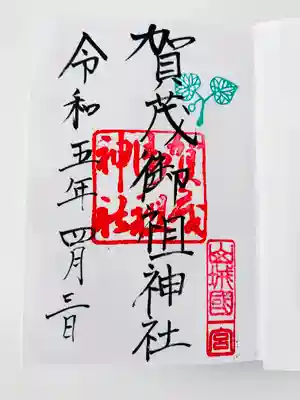 賀茂御祖神社
令和五年四月三日
賀茂御祖神社
山城國
一宮